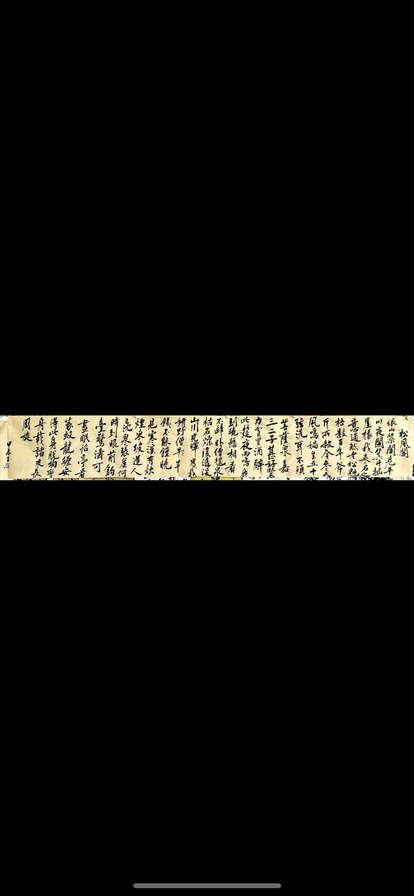 松風閣
依山築閣見平
川夜闌箕斗插
屋椽我來名之
意適然老松魁
梧數百年斧
斤所赦今參天
風鳴媧皇五十
弦洗耳不須
菩薩泉嘉
二三子甚好賢
力貧買酒醉
此筵夜雨鳴廊
到曉懸相看
不歸臥僧氈泉
枯石燥復潺湲
山川光輝為我
妍野僧早
饑不能饘曉
見寒溪有炊
煙東坡道人
已沉泉張侯何
時到眼前釣
臺驚濤可
晝眠怡亭看
篆蛟龍纏安
得此身脫拘攣
舟載諸友長
周旋
甲辰